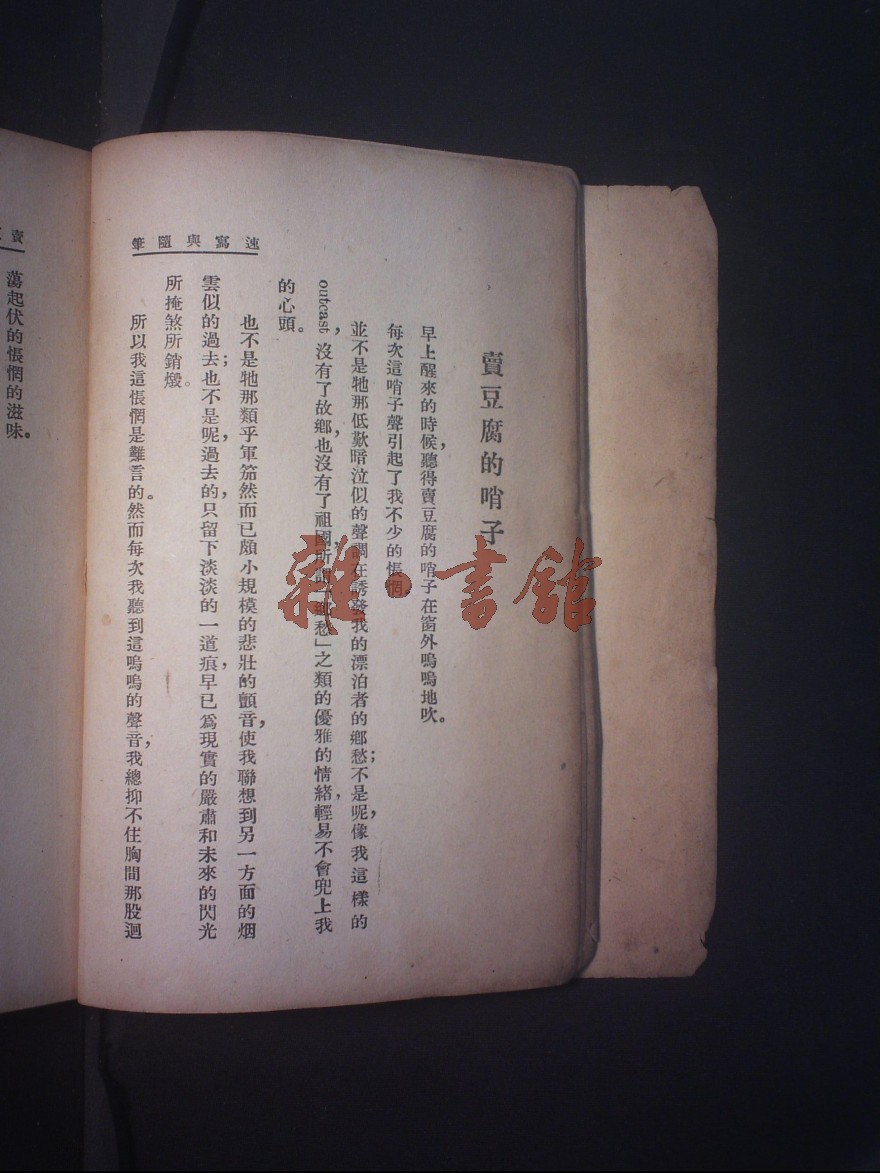 速寫與隨筆
賣豆腐的哨子
早上醒來的時候，聽得賣豆腐的哨子在窗外嗚嗚地吹。
每次這哨子聲引起了我不少的悵惘。
並不是牠那低歎暗泣似的聲調在誘發我的漂泊者的鄉愁；不是呢，像我這樣的
outcast，沒有了故鄉，也沒有了祖國，所謂「鄉愁」之類的優雅的情緒，輕易不會兜上我
的心頭。
也不是牠那類乎軍笳然而已頗小規模的悲壯的顫音，使我聯想到另一方面的烟
雲似的過去；也不是呢，過去的，只留下淡淡的一道痕，早已爲現實的嚴肅和未來的閃光
所掩煞所銷燬。
所以我這悵惘是難言的。然而每次我聽到這嗚嗚的聲音，我總抑不住胸間那股迴
賣
蕩起伏的悵惘的滋味。
雜·書館